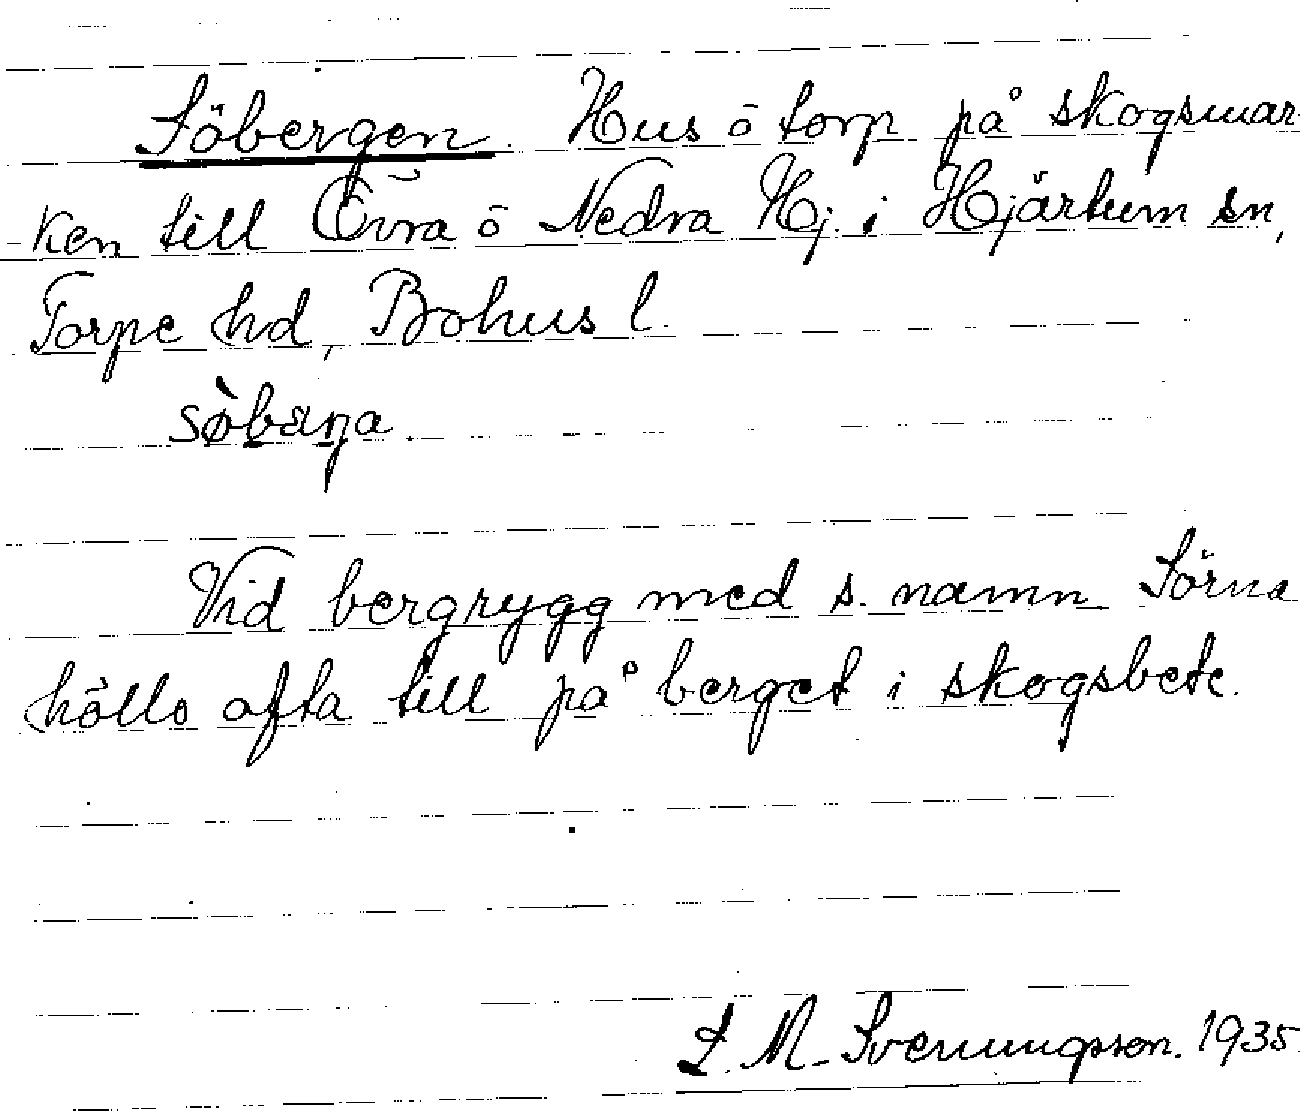 Söbergen. Hus ō torp på skogsmar-
ken till Övra ō Nedra Hj. i Hjärtum sn,
Torpe hd, Bohus l.
sø̀bæŋa.
Vid bergrygg med s. namn Sörna
höllo ofta till på berget i skogsbete.
S. M. Svenungsson. 1935